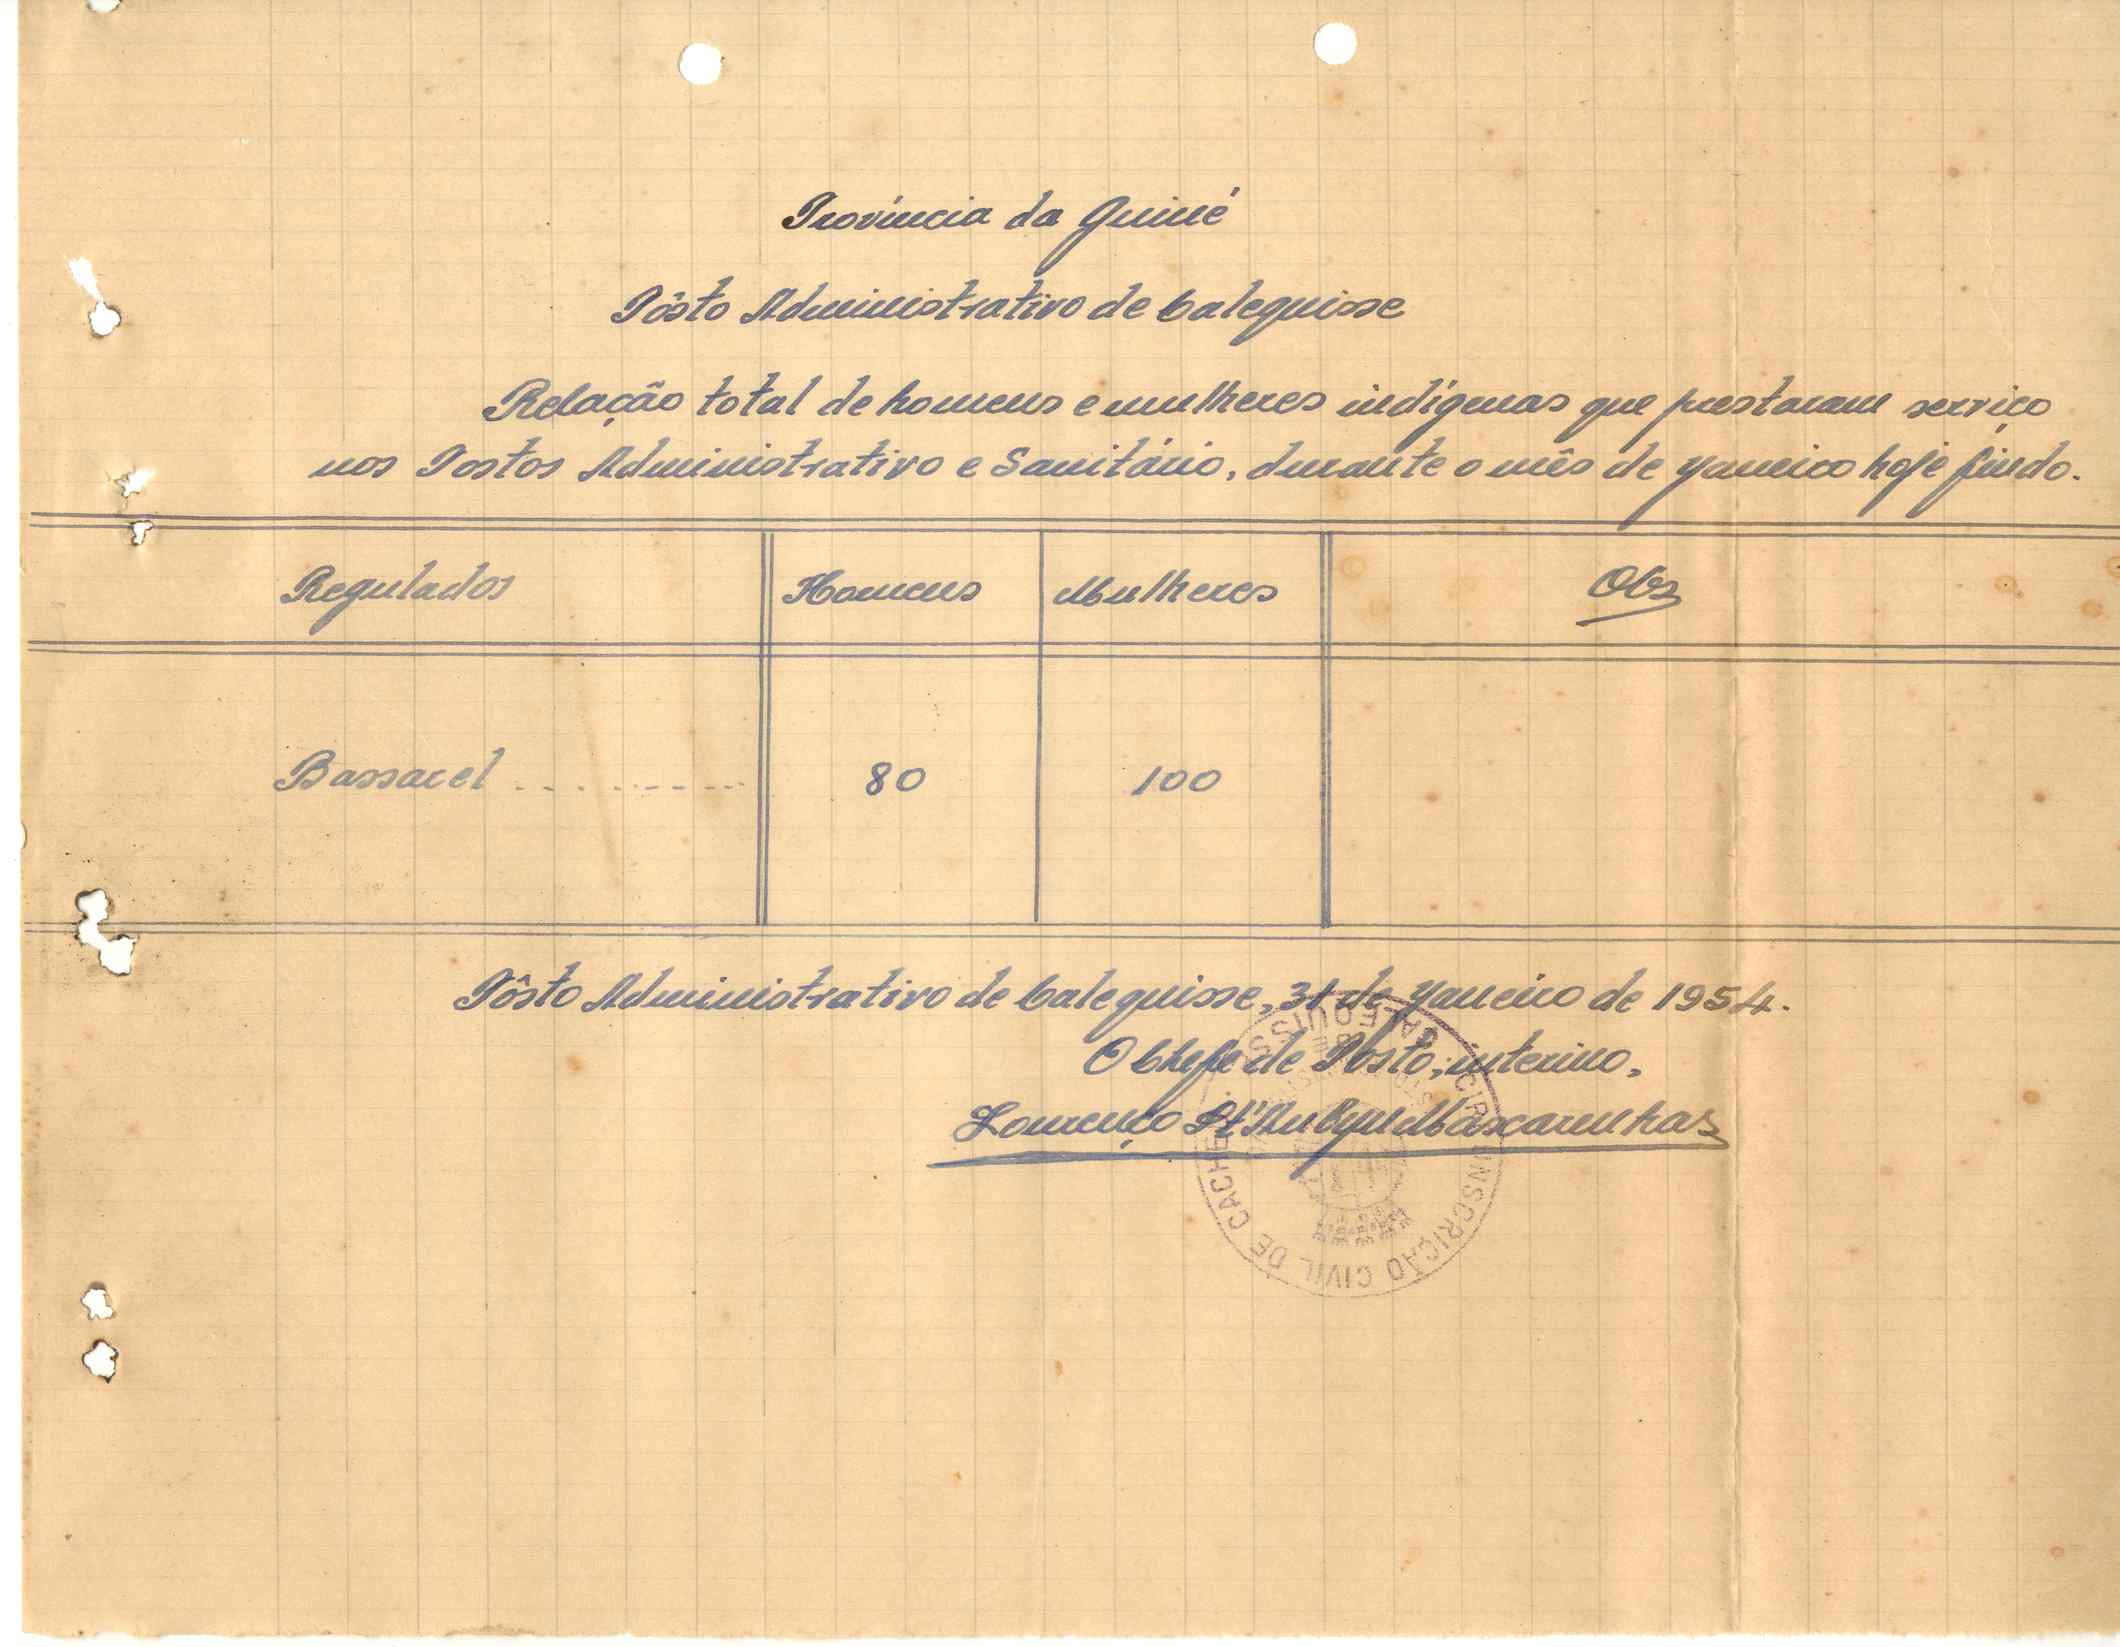 Província da Guiné
Pôsto Administrativo de Calequisse
Relação total de homens e mulheres indígenas que prestaram serviço
nos Postos Administrativo e Sanitário, durante o mês de Janeiro hoje findo.
Regulados Homens Mulheres Obs
Bassarel .......... 80 100
Pôsto Administrativo de Calequisse, 31 de Janeiro de 1954.
O Chefe de Posto, interino,
Lourenço Mascarenhas
CIRCUNSCRIÇÃO CIVIL DE CACHEU
CALEQUISSE